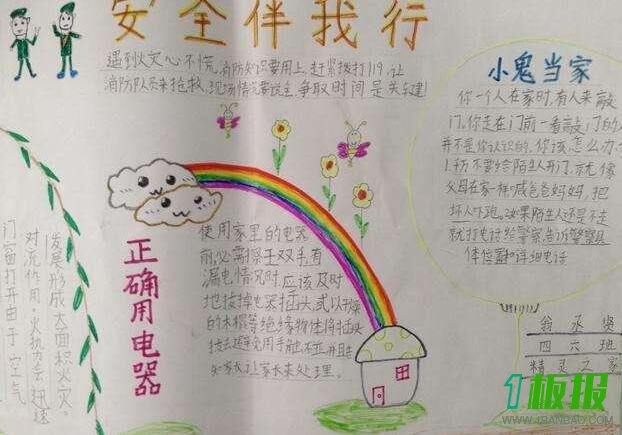 安全伴我行
遇到火灾心不慌,消防知识要用上,赶紧拨打119,让
消防队员来抢救,现场情况要说全,争取时间是关键!
小鬼当家
你一个人在家时,有人来敲
门,你走在门前一看敲门的人
并不是你认识的,你该怎么办
1.千万不要给陌生人开门,就像
父母在家一样喊爸爸妈妈,把
坏人吓跑。如果陌生人还是不走
就打电话给警察,告诉警察具
体位置和详细电话
正确用电器
使用家里的电器
前,必需擦干双手,有
漏电情况时,应该及时
地拔掉电器插头,或以干燥
的木棍等绝缘物体将插头
让家长来处理。
门窗打开由于空气
对流作用,火势会迅速
发展形成大面积火灾。
翁丞贤
四六班
精灵之家
1板报
WWW.1BANBAO.COM